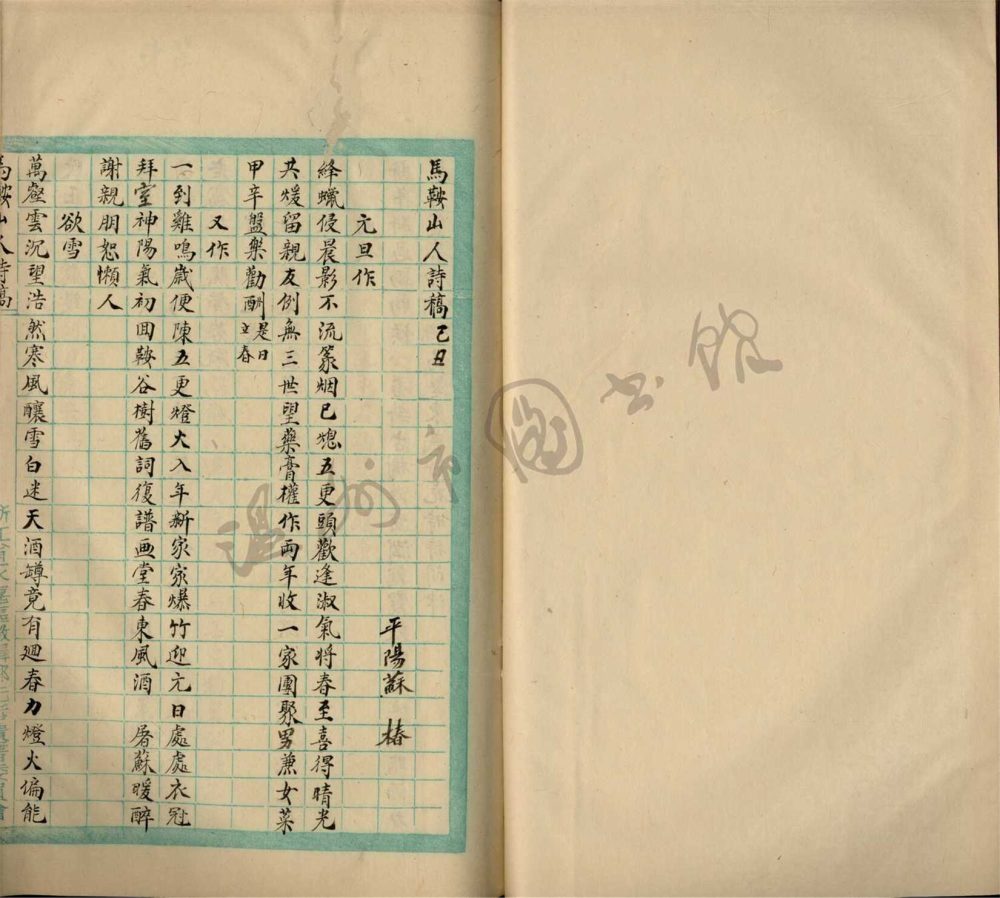 馬鞍山人詩稿 己丑
平陽蘇 椿
元旦作
絳蠟侵晨影不流篆烟已熄五更頭歡逢淑氣將春至喜得晴光
共煖留親友例無三世望藥膏權作兩年收一家團聚男兼女菜
甲辛盤樂勸酬 是日立春
又作
一到雞鳴歲便陳五更燈火入年新家家爆竹迎元日處處衣冠
拜室神陽氣初囬鞍谷樹舊詞復譜画堂春東風酒 屠蘇暖醉
謝親朋恕懶人
欲雪
萬壑雲沉望浩然寒風釀雪白迷天酒罇竟有廻春力燈火偏能
馬鞍山人詩稿
温州市圖书館